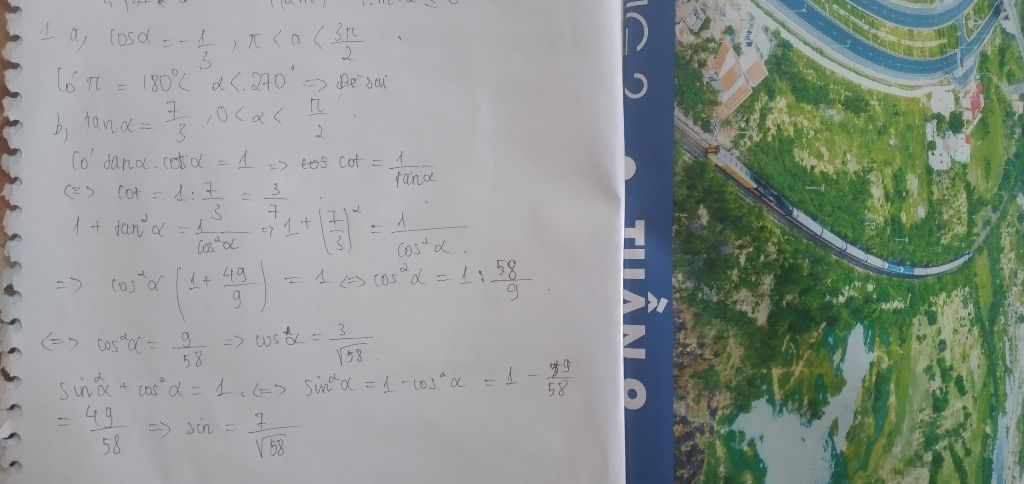 1 a, cosα = -1/3, π < α < 3π/2.
Có π = 180° < α < 270° => Đề sai
b, tanα = 7/3, 0 < α < π/2.
Có tanα.cotα = 1 => cot = 1/tanα
<=> cot = 1 : 7/3 = 3/7
1 + tan²α = 1/cos²α => 1 + (7/3)² = 1/cos²α.
=> cos²α (1 + 49/9) = 1 <=> cos²α = 1 : 58/9.
<=> cos²α = 9/58 => cosα = 3/√58.
sin²α + cos²α = 1. <=> sin²α = 1 - cos²α = 1 - 9/58
= 49/58 => sin = 7/√58
TUẦN